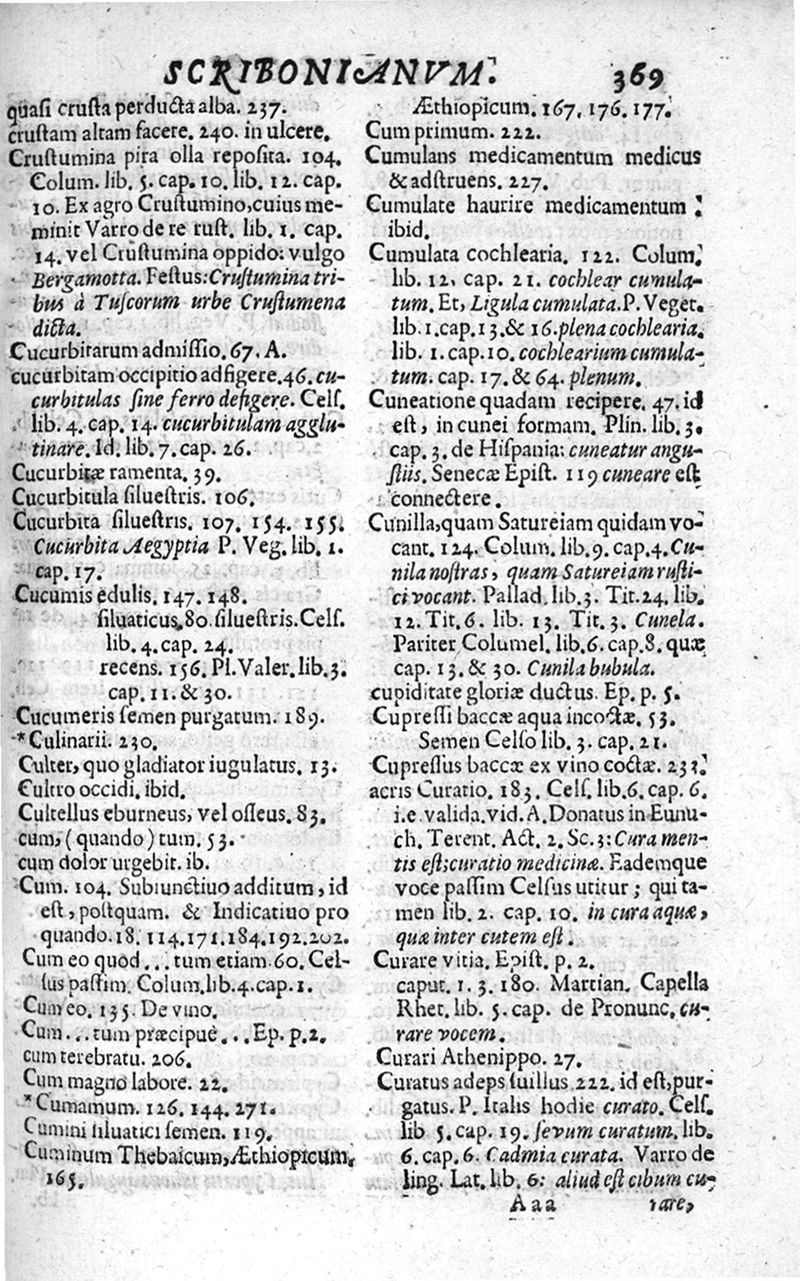 SCRIBONIANVM. 369
quasi crusta perducta alba. 237.
crustam altam facere. 240. in ulcere.
Crustumina pira olla reposita. 104.
Colum. lib. 5. cap. 10. lib. 12. cap.
10. Ex agro Crustumino, cuius me-
minit Varro de re rust. lib. 1. cap.
14. vel Crustumina oppido: vulgo
Bergamotta. Festus: Crustumina tri-
bus à Tuscorum urbe Crustumena
dicta.
Cucurbitarum admissio. 67. A.
cucurbitam occipitio adfigere. 46. cu-
curbitulas sine ferro defigere. Cels.
lib. 4. cap. 14. cucurbitulam agglu-
tinare. Id. lib. 7. cap. 26.
Cucurbitæ ramenta. 39.
Cucurbitula siluestris. 106.
Cucurbita siluestris. 107. 154. 155.
Cucurbita Aegyptia P. Veg. lib. 1.
cap. 17.
Cucumis edulis. 147. 148.
siluaticus. 80. siluestris. Cels.
lib. 4. cap. 24.
recens. 156. Pl. Valer. lib. 3.
cap. 11. & 30.
Cucumeris semen purgatum. 189.
* Culinarii. 230.
Culter, quo gladiator iugulatus. 13.
Cultro occidi. ibid.
Cultellus eburneus, vel osseus. 83.
cum, (quando) tum. 53.
cum dolor urgebit. ib.
Cum. 104. Subiunctiuo additum, id
est, postquam. & Indicatiuo pro
quando. 18. 114. 171. 184. 192. 202.
Cum eo quod... tum etiam. 60. Cel-
sus passim. Colum. lib. 4. cap. 1.
Cum eo. 135. De vino.
Cum... tum præcipuè... Ep. p. 2.
cum terebratu. 206.
Cum magno labore. 22.
* Cumamum. 126. 144. 271.
Cumini siluatici semen. 119.
Cuminum Thebaicum, Æthiopicum.
165.
Æthiopicum. 167. 176. 177.
Cum primum. 222.
Cumulans medicamentum medicus
& adstruens. 227.
Cumulate haurire medicamentum :
ibid.
Cumulata cochlearia. 122. Colum.
lib. 12. cap. 21. cochlear cumula-
tum. Et, Ligula cumulata. P. Veget.
lib. 1. cap. 13. & 16. plena cochlearia.
lib. 1. cap. 10. cochlearium cumula-
tum. cap. 17. & 64. plenum.
Cuneatione quadam recipere. 47. id
est, in cunei formam. Plin. lib. 3.
cap. 3. de Hispania: cuneatur angu-
stiis. Senecæ Epist. 119 cuneare est
connectere.
Cunilla, quam Satureiam quidam vo-
cant. 124. Colum. lib. 9. cap. 4. Cu-
nila nostras, quam Satureiam rusti-
ci vocant. Pallad. lib. 3. Tit. 24. lib.
12. Tit. 6. lib. 13. Tit. 3. Cunela.
Pariter Columel. lib. 6. cap. 8. quæ
cap. 13. & 30. Cunila bubula.
cupiditate gloriæ ductus. Ep. p. 5.
Cupressi baccæ aqua incoctæ. 53.
Semen Celso lib. 3. cap. 21.
Cupressus baccæ ex vino coctæ. 233.
acris Curatio. 183. Cels. lib. 6. cap. 6.
i.e. valida. vid. A. Donatus in Eunu-
ch. Terent. Act. 2. Sc. 3: Cura men-
tis est; curatio medicinæ. Eademque
voce passim Celsus utitur; qui ta-
men lib. 2. cap. 10. in cura aquæ,
quæ inter cutem est.
Curare vitia. Epist. p. 2.
caput. 1. 3. 180. Martian. Capella
Rhet. lib. 5. cap. de Pronunc. cu-
rare vocem.
Curari Athenippo. 27.
Curatus adeps suillus. 222. id est, pur-
gatus. P. Italis hodie curato. Cels.
lib 5. cap. 19. sevum curatum. lib.
6. cap. 6. Cadmia curata. Varro de
ling. Lat. lib. 6: aliud est cibum cu-
Aaa rare,